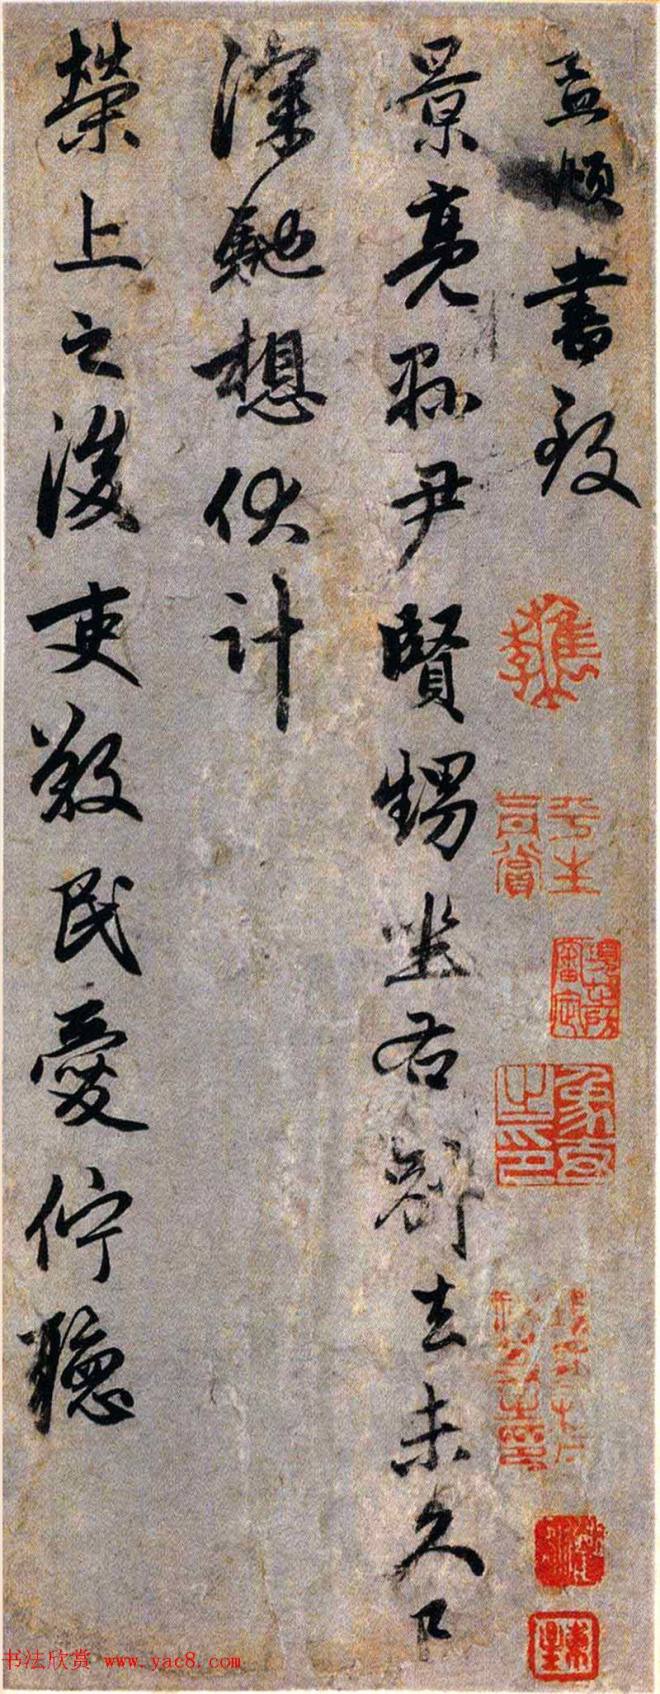 孟頫書致
景亮縣尹賢甥坐右別去未久
深馳想伏計
榮上之後吏嚴民愛佇聽
书法欣赏 www.yac8.com